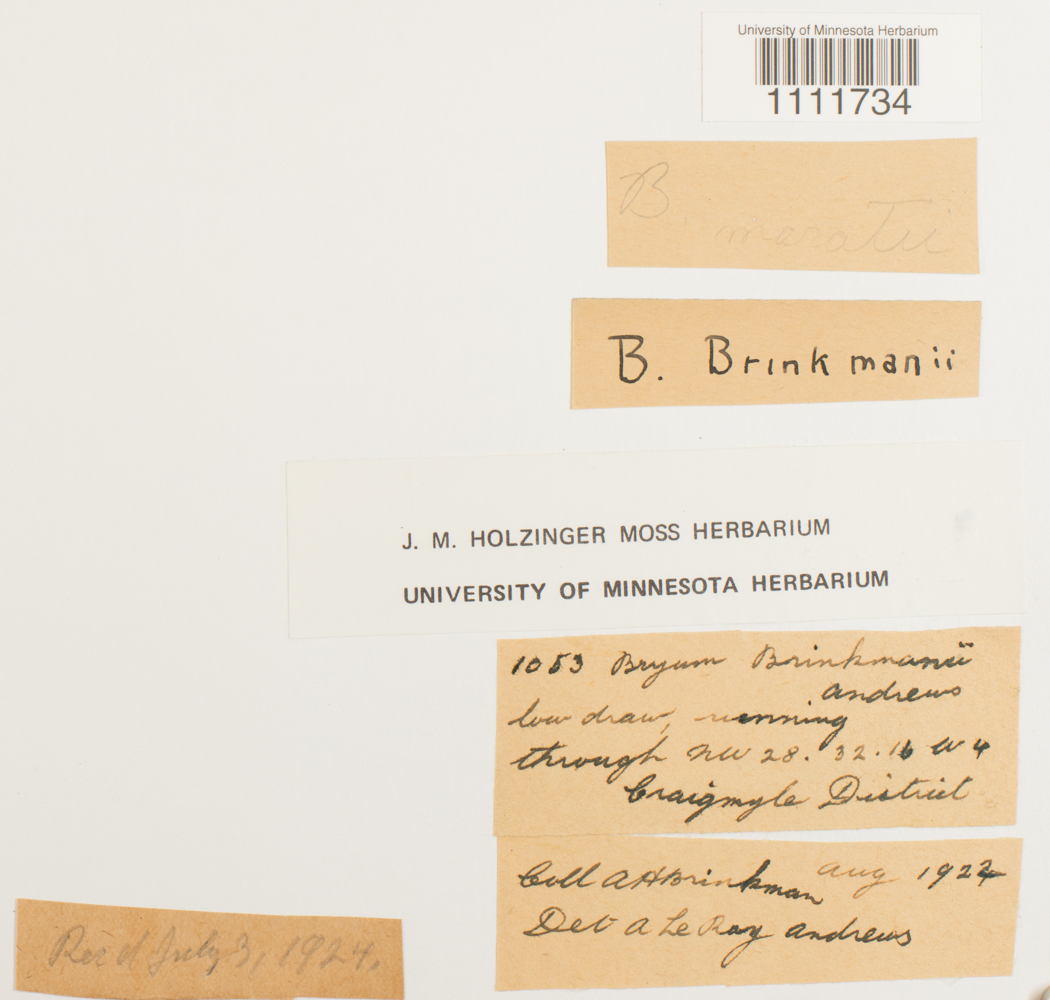 University of Minnesota Herbarium
1111734
B. maratii
B. Brinkmanii
J. M. HOLZINGER MOSS HERBARIUM
UNIVERSITY OF MINNESOTA HERBARIUM
1053 Bryum Brinkmanii
andrews
low draw, running
through NW 28. 32. 16 W 4
Craigmyle District
Coll A H Brinkman aug 1922
Det A Le Roy andrews
Rec'd July 3, 1924.